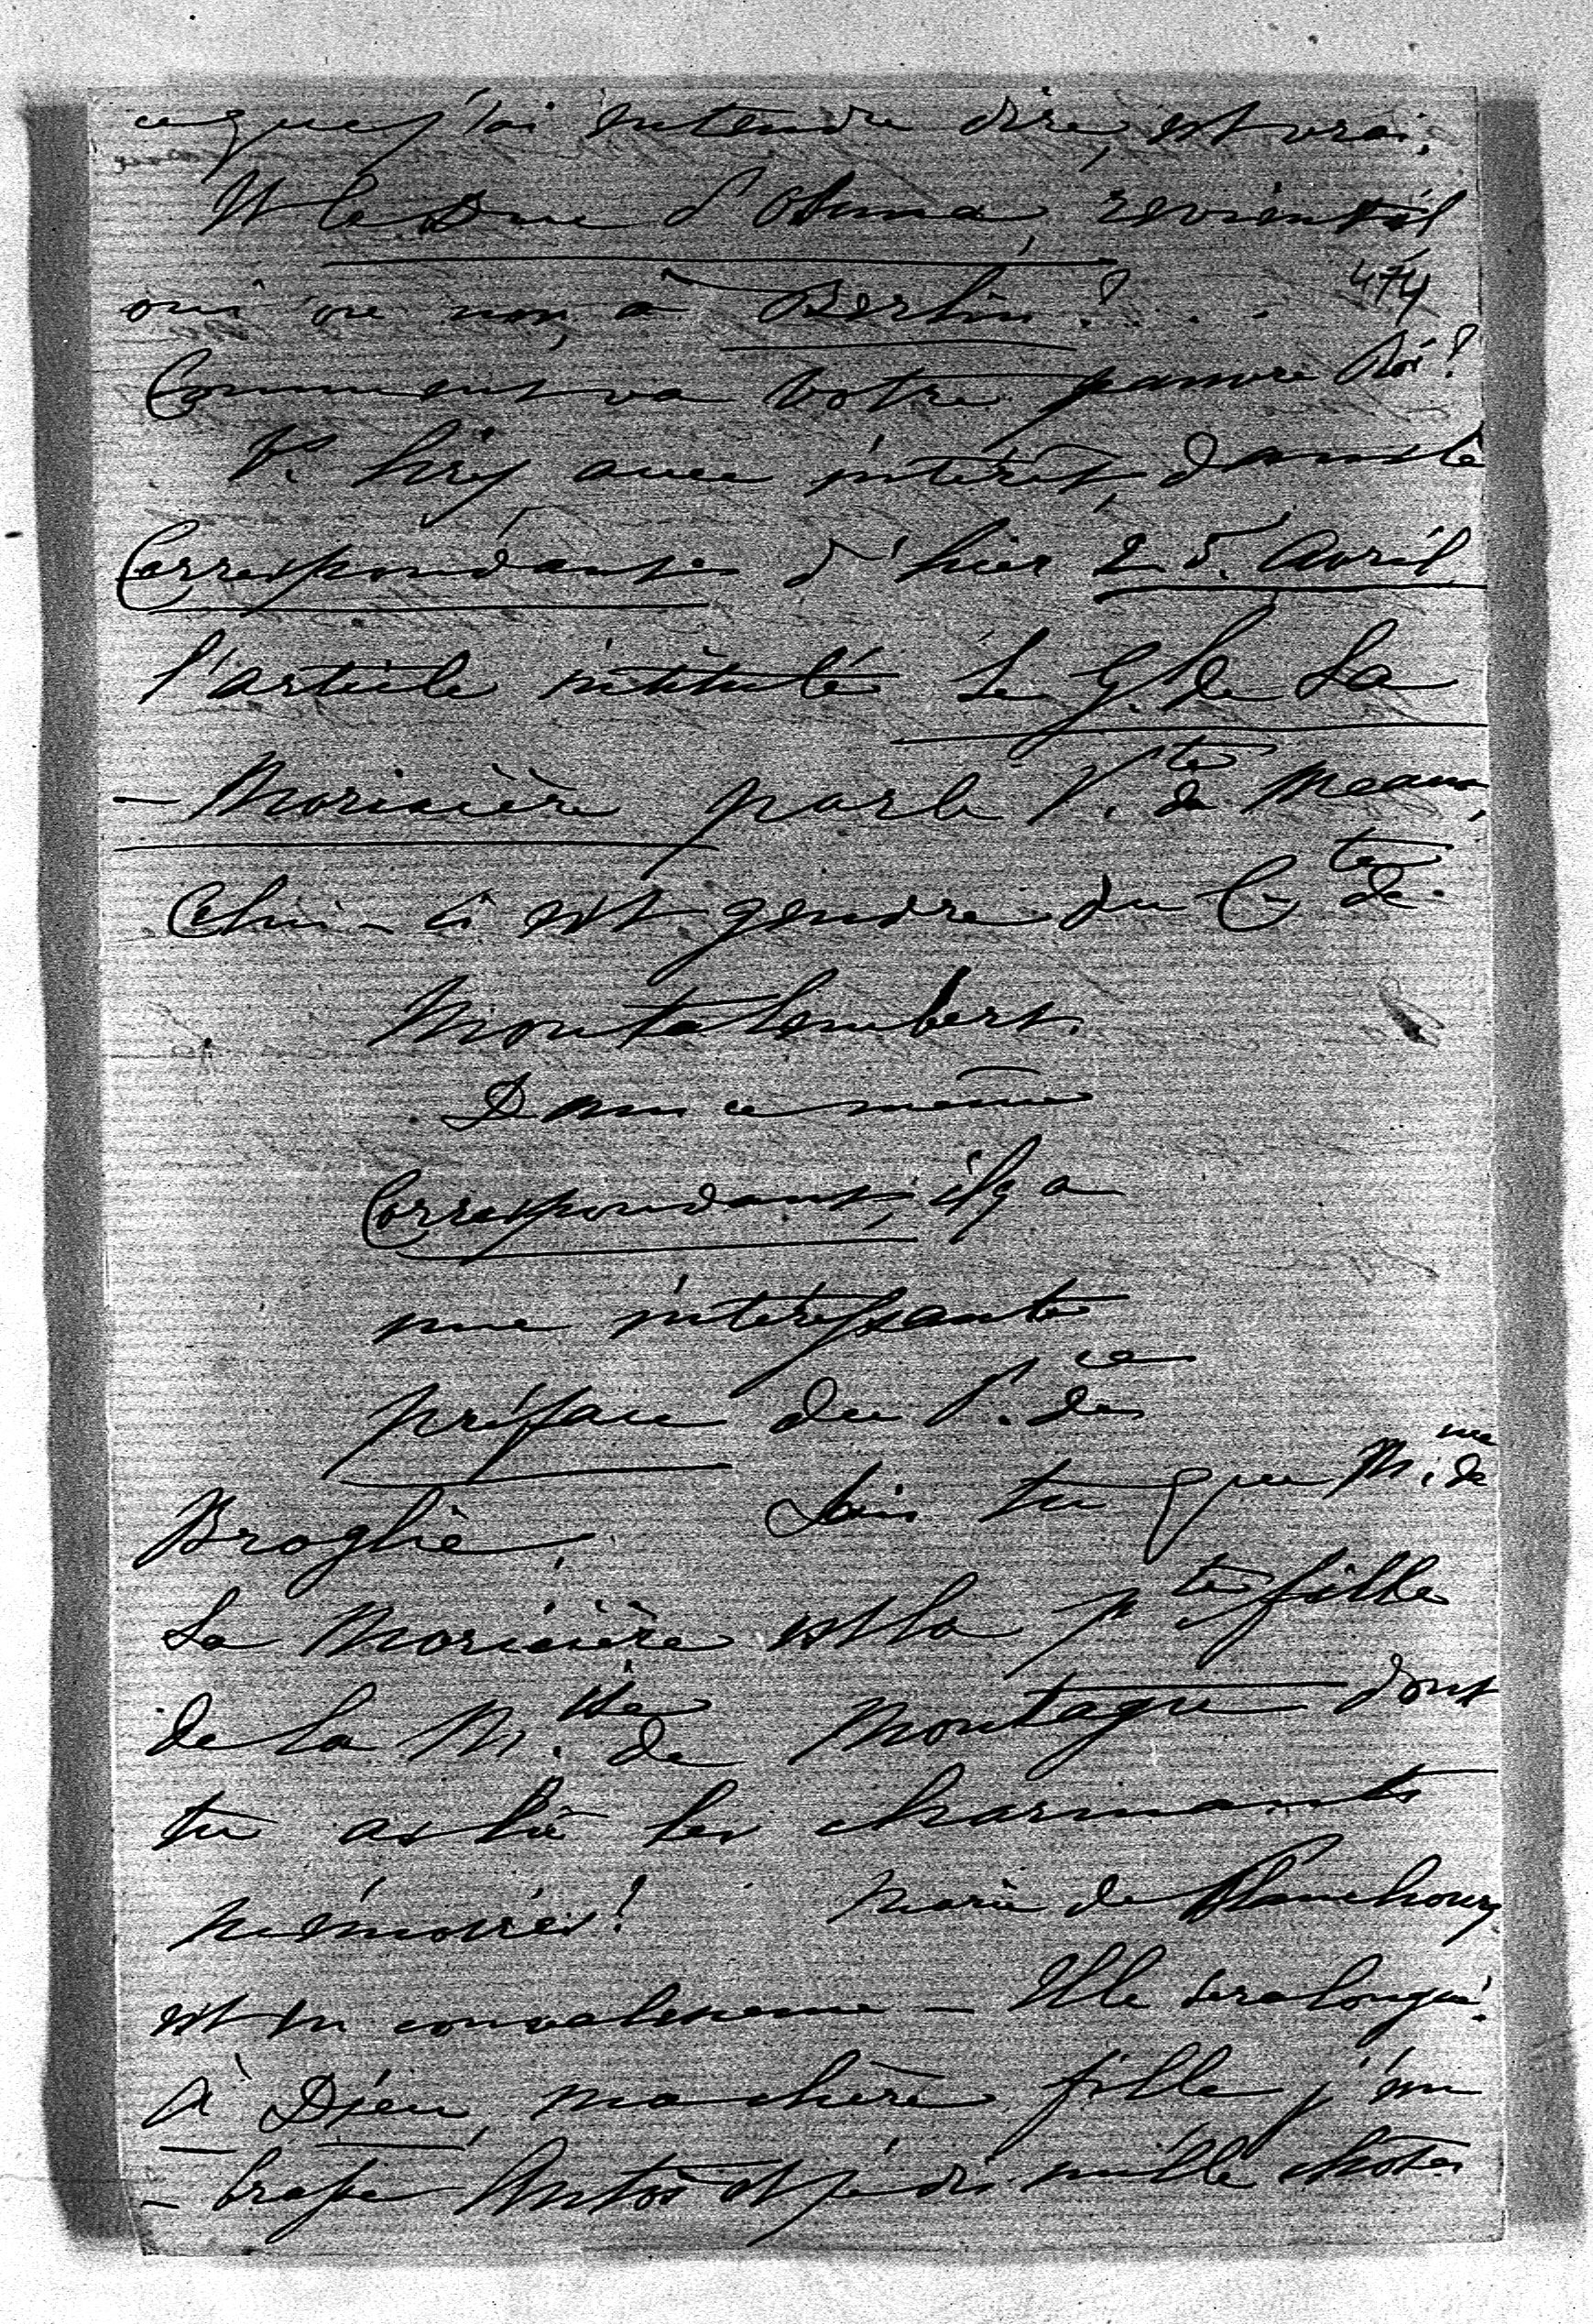 ce que j'ai entendu dire, est vrai.
Et le Duc d'Osuna, revient-il
474
oui ou non, à Berlin? . . .
Comment va votre pauvre Roi?
lirez avec intérêt, dans le
Correspondant d'hier 25. avril
l'article intitulé Le G. de La
- Moricière par le V.te de Meaux,
Celui-ci est gendre du C.te de
Montalembert.
Dans ce même
Correspondant, il y a
une intéressante
préface du P.ce de
Broglie. Sais tu que M.me de
La Moricière est la p.te fille
de la M.ise de Montagu dont
tu as lu les charmants
mémoires! Marie de
est en convalescence - Elle sera longue.
à Dieu, ma chère fille j'em
- brasse Antoine et je dis mille choses